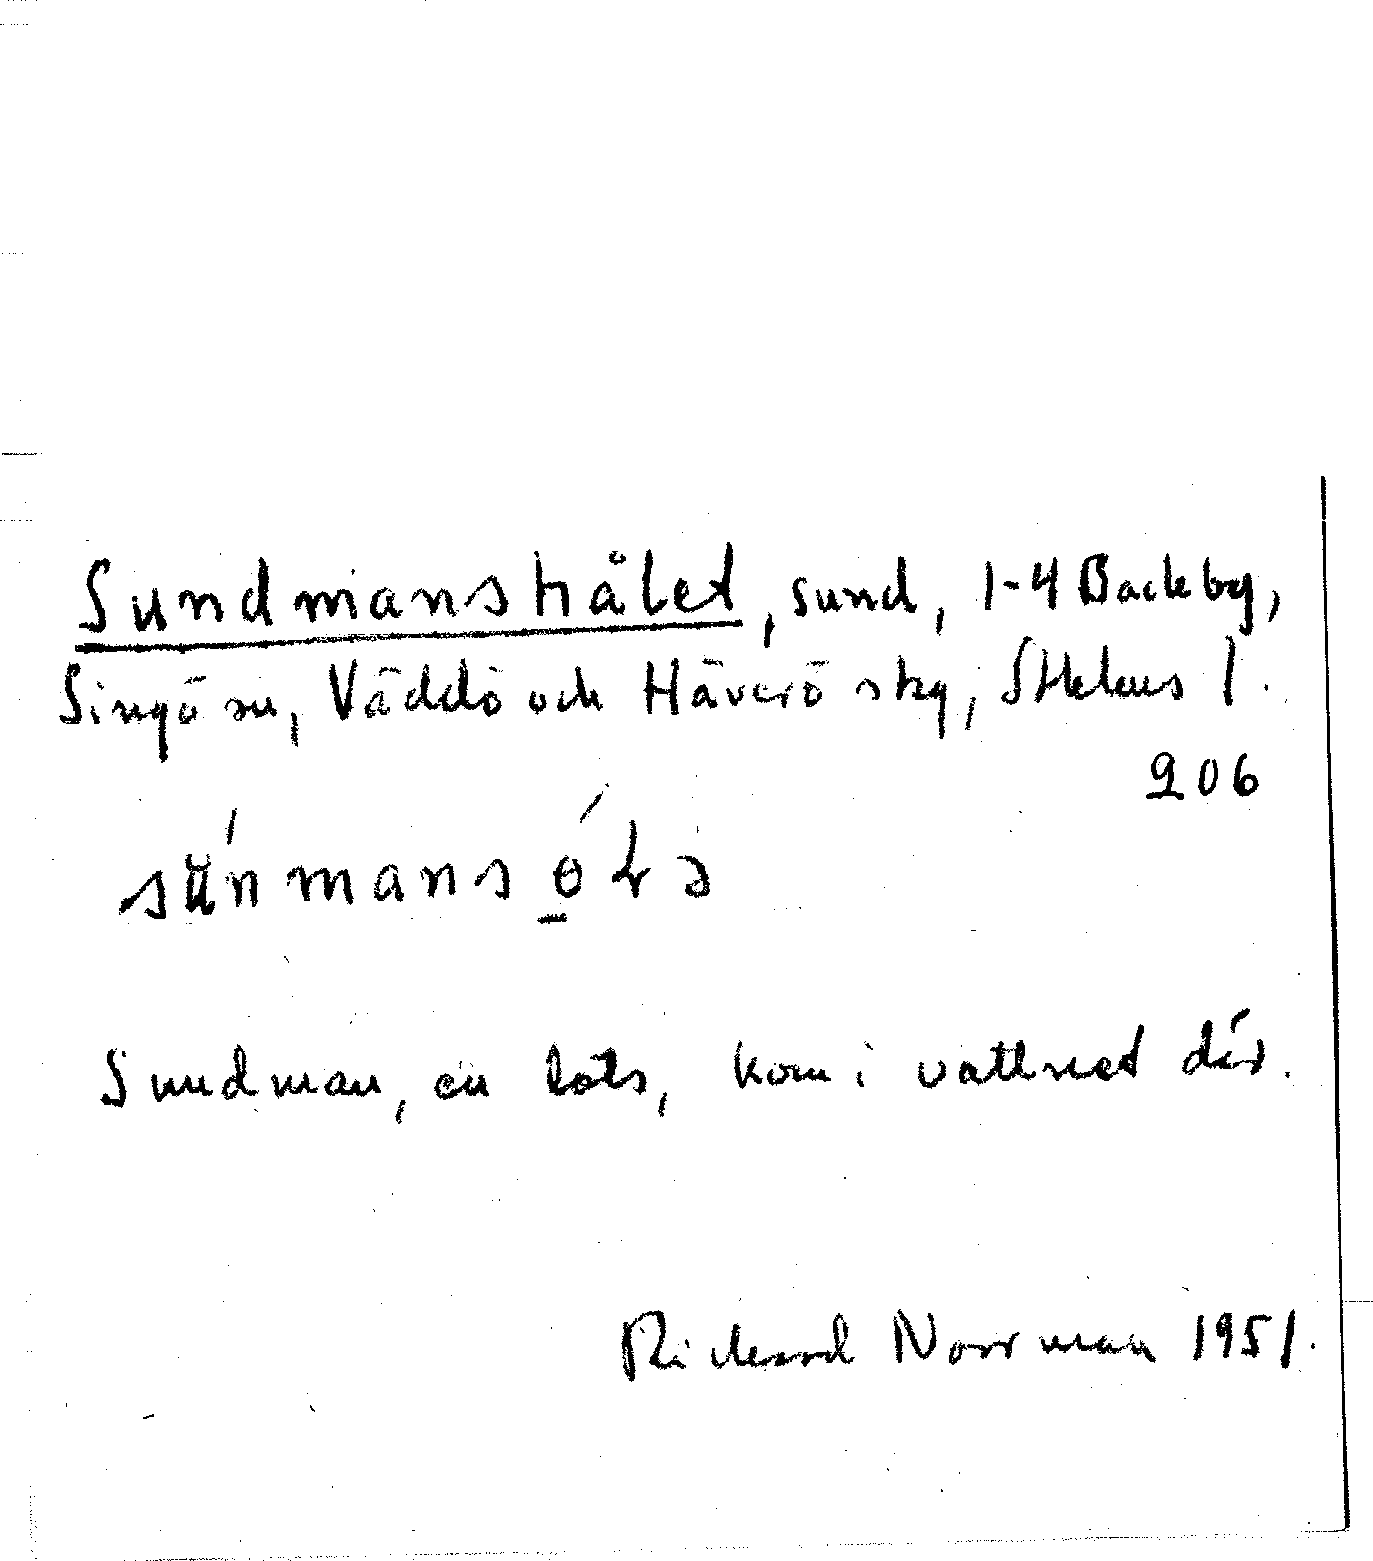 Sundmanshålet, sund, 1-4 Backby,
Singö sn, Väddö och Häverö skg, Sthlms l.
206
sŭ́nmansó̱ɫə
Sundman, en lots, kom i vattnet där.
Rickard Norrman 1951.